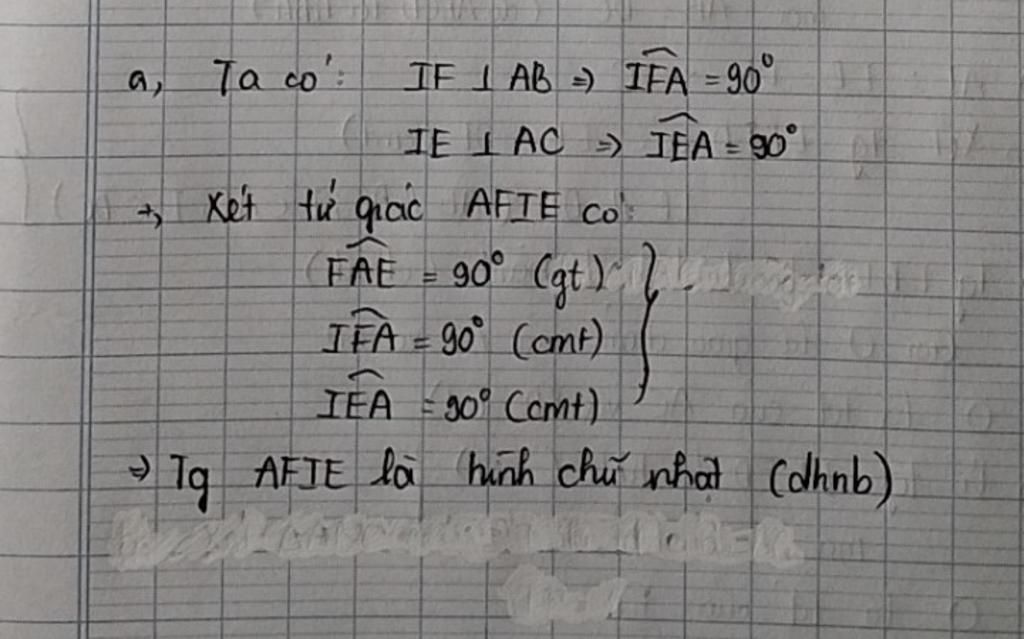 a, Ta có: IF ⊥ AB ⇒ \widehat{IFA} = 90°
IE ⊥ AC ⇒ \widehat{IEA} = 90°
+, Xét tứ giác AFIE có:
\widehat{FAE} = 90° (gt)
\widehat{IFA} = 90° (cmt)
\widehat{IEA} = 90° (cmt)
⇒ Tg AFIE là hình chữ nhật (dhnb)